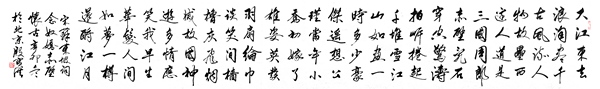 大江東去
浪淘盡千
古風流人
物故壘西
邊人道是
三國周郎
赤壁亂石
穿空驚濤
拍岸捲起
千堆雪江
山如畫一
時多少豪
傑遙想公
瑾當年小
喬初嫁了
雄姿英發
羽扇綸巾
談笑間檣
櫓灰飛煙
滅故國神
遊多情應
笑我早生
華髮人間
如夢一樽
還酹江月
宋蘇東坡詞
念奴嬌赤壁
懷古辛卯冬
於北京